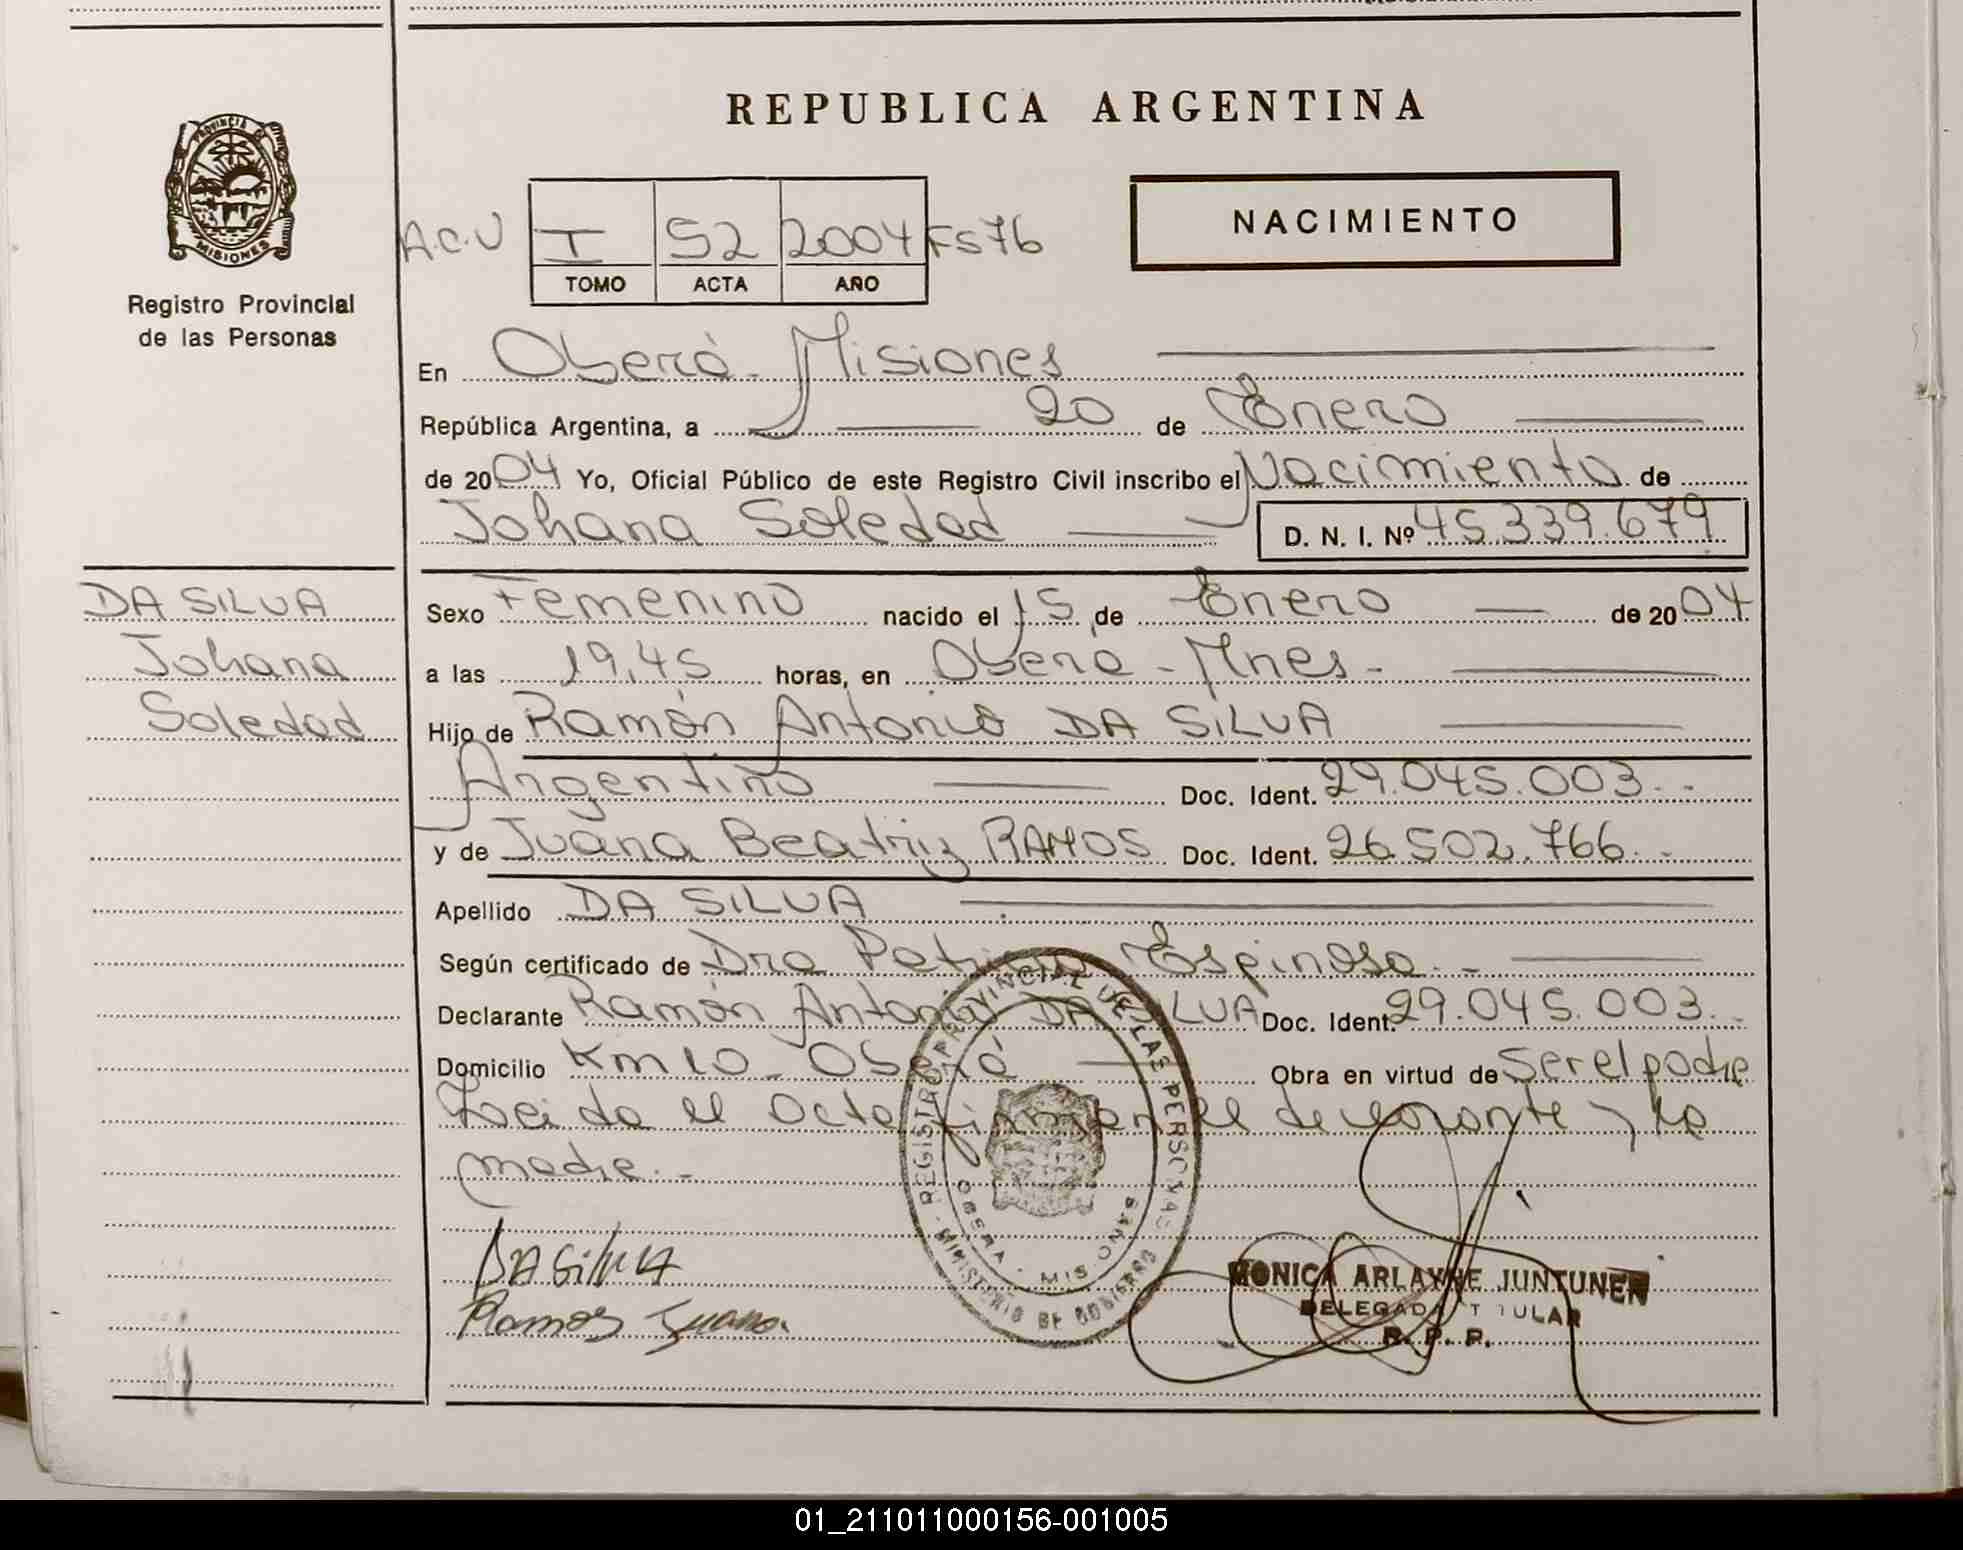 REPUBLICA ARGENTINA
PROVINCIA DE
MISIONES
Registro Provincial
de las Personas
NACIMIENTO
A.C.U I 52 2004 Fs 76
TOMO ACTA AÑO
En Oberá - Misiones
República Argentina, a 20 de Enero
de 2004 Yo, Oficial Público de este Registro Civil inscribo el Nacimiento de
Johana Soledad D. N. I. Nº 45.339.679
DA SILVA
Johana
Soledad
Sexo Femenino nacido el 15 de Enero de 2004
a las 19,45 horas, en Oberá - Mnes -
Hijo de Ramón Antonio DA SILVA
Argentino Doc. Ident. 29.045.003.-
y de Juana Beatriz RAMOS Doc. Ident. 26.502.766.-
Apellido DA SILVA
Según certificado de Dra Patricia Espinosa.-
Declarante Ramón Antonio DA SILVA Doc. Ident. 29.045.003.-
Domicilio Km 10 - Oberá Obra en virtud de ser el padre
Leida el acta firman el declarante y la
madre.-
REGISTRO PROVINCIAL DE LAS PERSONAS
MINISTERIO DE GOBIERNO
OBERA - MISIONES
DA SILVA
Ramos Juana
MONICA ARLAYNE JUNTUNEN
DELEGADA TITULAR
R. P. P.
01_211011000156-001005